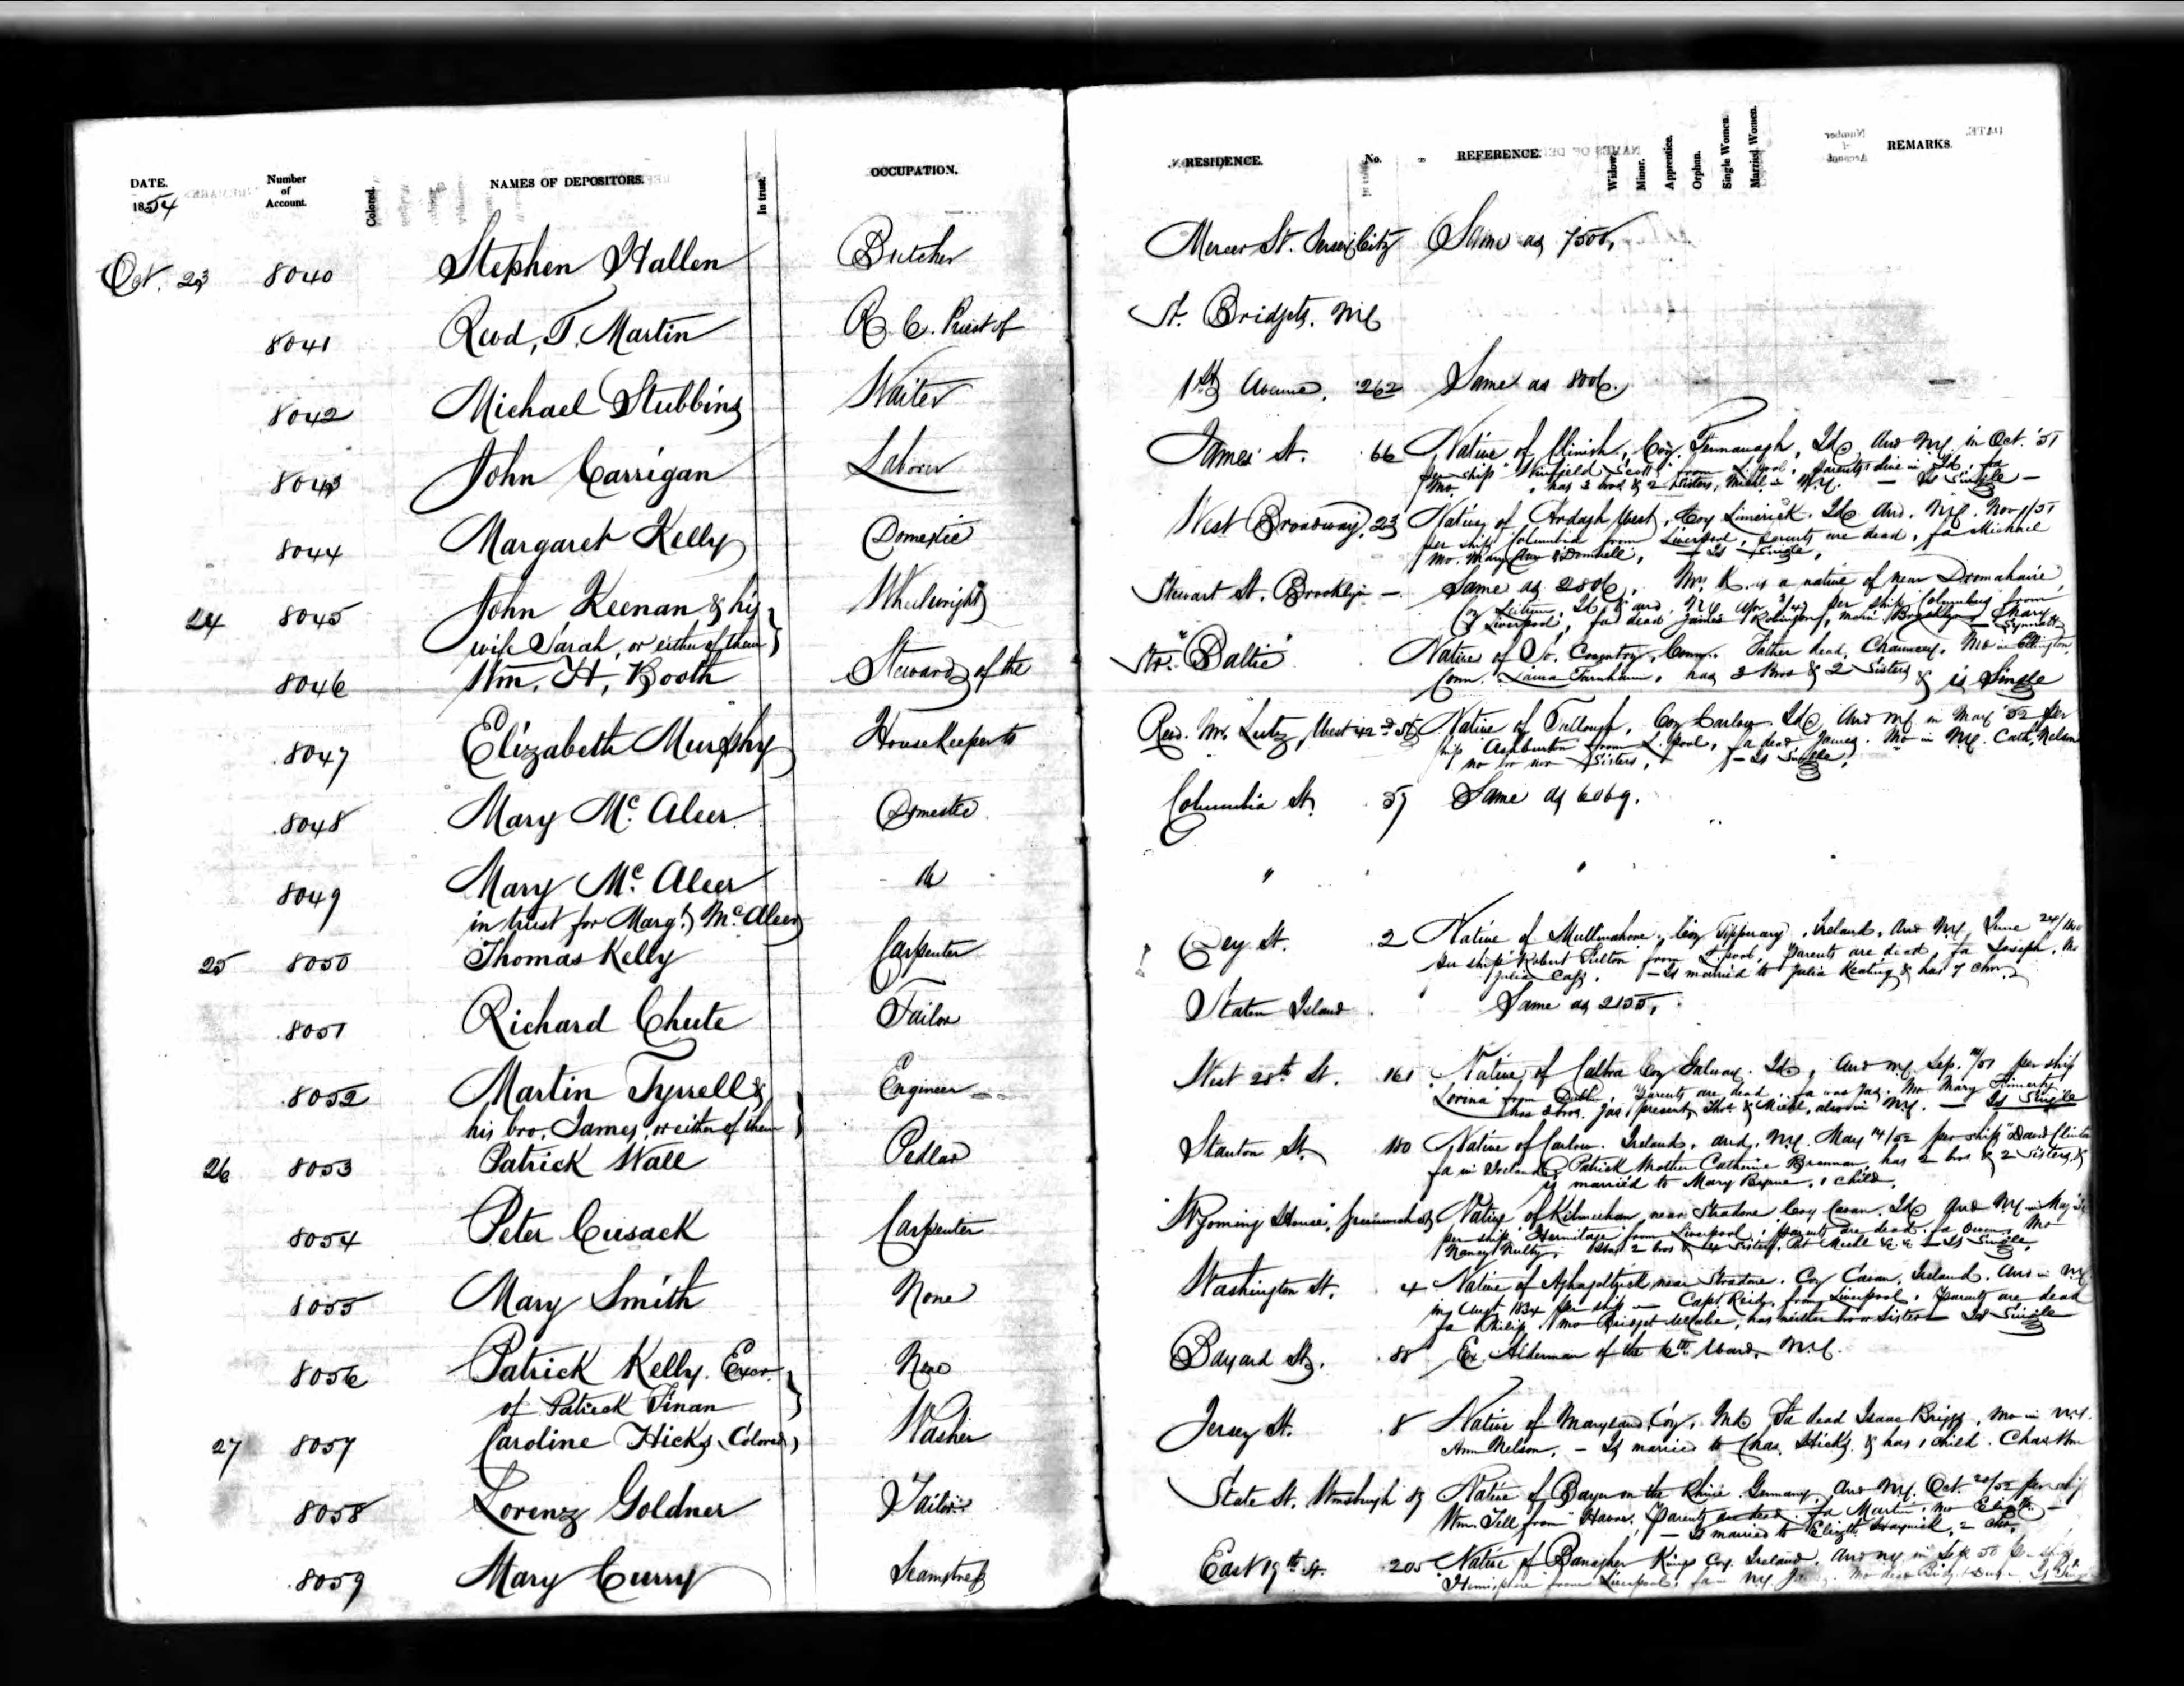 DATE. Number of Account. Colored. NAMES OF DEPOSITORS. In trust. OCCUPATION. RESIDENCE. No. REFERENCE. Widow. Minor. Apprentice. Orphan. Single Women. Married Women. REMARKS.
1854
Oct. 23 8040 Stephen Hallen Butcher Mercer St. Jersey City Same as 7505,
8041 Revd, T. Martin R. C. Priest of St. Bridgets. NY
8042 Michael Stubbins Waiter 1st Avenue, 262 Same as 8006.
8043 John Carrigan Laborer James St. 66 Native of Clinish, Coy. Fermanagh, Id, Arrd NY. in Oct. '51
per ship "Winfield Scott" from L.pool, parents live in Id, fa
Mo. has 2 bros & 2 Sisters, Michl. in N.Y. — Is Single —
8044 Margaret Kelly Domestic West Broadway, 23 Native of Ardagh West, Coy Limerick. Id Arr. NY. Nov 1/51
per ship Columbia from Liverpool, parents are dead, fa Michael
Mo. Mary Ann O'Donnell, — Is Single,
24 8045 John Keenan & his Wheelwright Stewart St. Brooklyn — Same as 2806, Mrs. K. is a native of near Dromahaire,
wife Sarah, or either of them Coy Leitrim, Id & arrd. N.Y. Apr 3/47 per ship Columbus from
Liverpool, fa dead James Robinson, mo in Brooklyn Mary Synnott
8046 Wm. H. Booth Steward of the Str. "Baltic" Native of So. Coventry, Conn. Father dead, Chauncey. Mo in Ellington,
Conn. Laura Farnham, has 3 bros & 2 Sisters & is Single
8047 Elizabeth Murphy Housekeeper to Revd. Mr. Lutz, West 42nd St. Native of Tullough, Coy Carlow. Id Arrd NY in May '52 per
ship "Ashburton from L.pool, fa dead James. Mo in N.Y. Cath. Nelson
no bro nor Sisters, — Is Single,
8048 Mary Mc. Aleer Domestic Columbia St. 57 Same as 6069.
8049 Mary Mc. Aleer do " "
in trust for Margt. McAleer
25 8050 Thomas Kelly Carpenter Dey St. 2 Native of Mullinahone, Coy Tipperary, Ireland, Arrd NY, June 24/
per ship "Robert Fulton from L.pool, Parents are dead, fa Joseph, Mo
Julia — Is married to Julia Keating & has 7 chn.
8051 Richard Chute Tailor Staten Island Same as 2155,
8052 Martin Tyrrell & Engineer West 28th St. 161 Native of Caltra Coy Galway. Id, Arrd NY. Sep. /51 per ship
his bro, James, or either of them Lorena from Dublin, Parents are dead, fa was Jas. Mo Mary
has 3 bros. Jas present, Thos & Michl, also in N.Y. — Is Single
26 8053 Patrick Wall Pedlar Stanton St. 100 Native of Carlow. Ireland, arrd. N.Y. May 14/52 per ship "David Clinton
fa in Ireland Patrick Mother Catherine Brennan, has 2 bros & 2 Sisters, &
is married to Mary Byrne, 1 child,
8054 Peter Cusack Carpenter "Wyoming House," Greenwich St. Native of Kilmeehan near Stradone Coy Cavan. Id Arrd N.Y. in May
per ship Hermitage from Liverpool, parents are dead, fa Owen, Mo
Nancy Nulty, Has 2 bros & 4 Sisters, Pat Michl &c &c — Is Single,
8055 Mary Smith None Washington St. 4 Native of near Stradone. Coy Cavan, Ireland. Arrd in NY
in Augt 1834 per ship — Capt. Reid, from Liverpool, Parents are dead
fa Philip, mo Bridget McCabe, has neither bro or Sister — Is Single
8056 Patrick Kelly. Exor. None Bayard St. 88 Ex. Alderman of the 6th Ward, N.Y.
of Patrick Finan
27 8057 Caroline Hicks (Colored) Washer Jersey St. 8 Native of Maryland Coy, Md. Fa dead Isaac Briggs, Mo in N.Y.
Ann Nelson, — Is married to Chas. Hicks, & has 1 child. Chas Wm
8058 Lorenz Goldner Tailor State St. Wmsburgh 89 Native of on the Rhine, Germany, Arrd NY. Oct. 20/52 per ship
Wm. Tell from Havre, Parents are dead. fa Martin, mo Elizth. —
— Is married to Elizth 2 chn,
8059 Mary Curry Seamstress East 19th St. 205 Native of Banagher Kings Coy. Ireland, arrd NY in Sep 50 per ship
"Hemisphere" from Liverpool, fa in N.Y. Mo dead Is Single